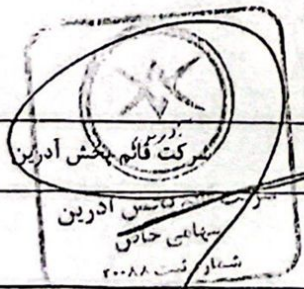 شرکت قائم پخش آدرین
آدرین
سهامی خاص
شماره ثبت ۲۰۰۸۸